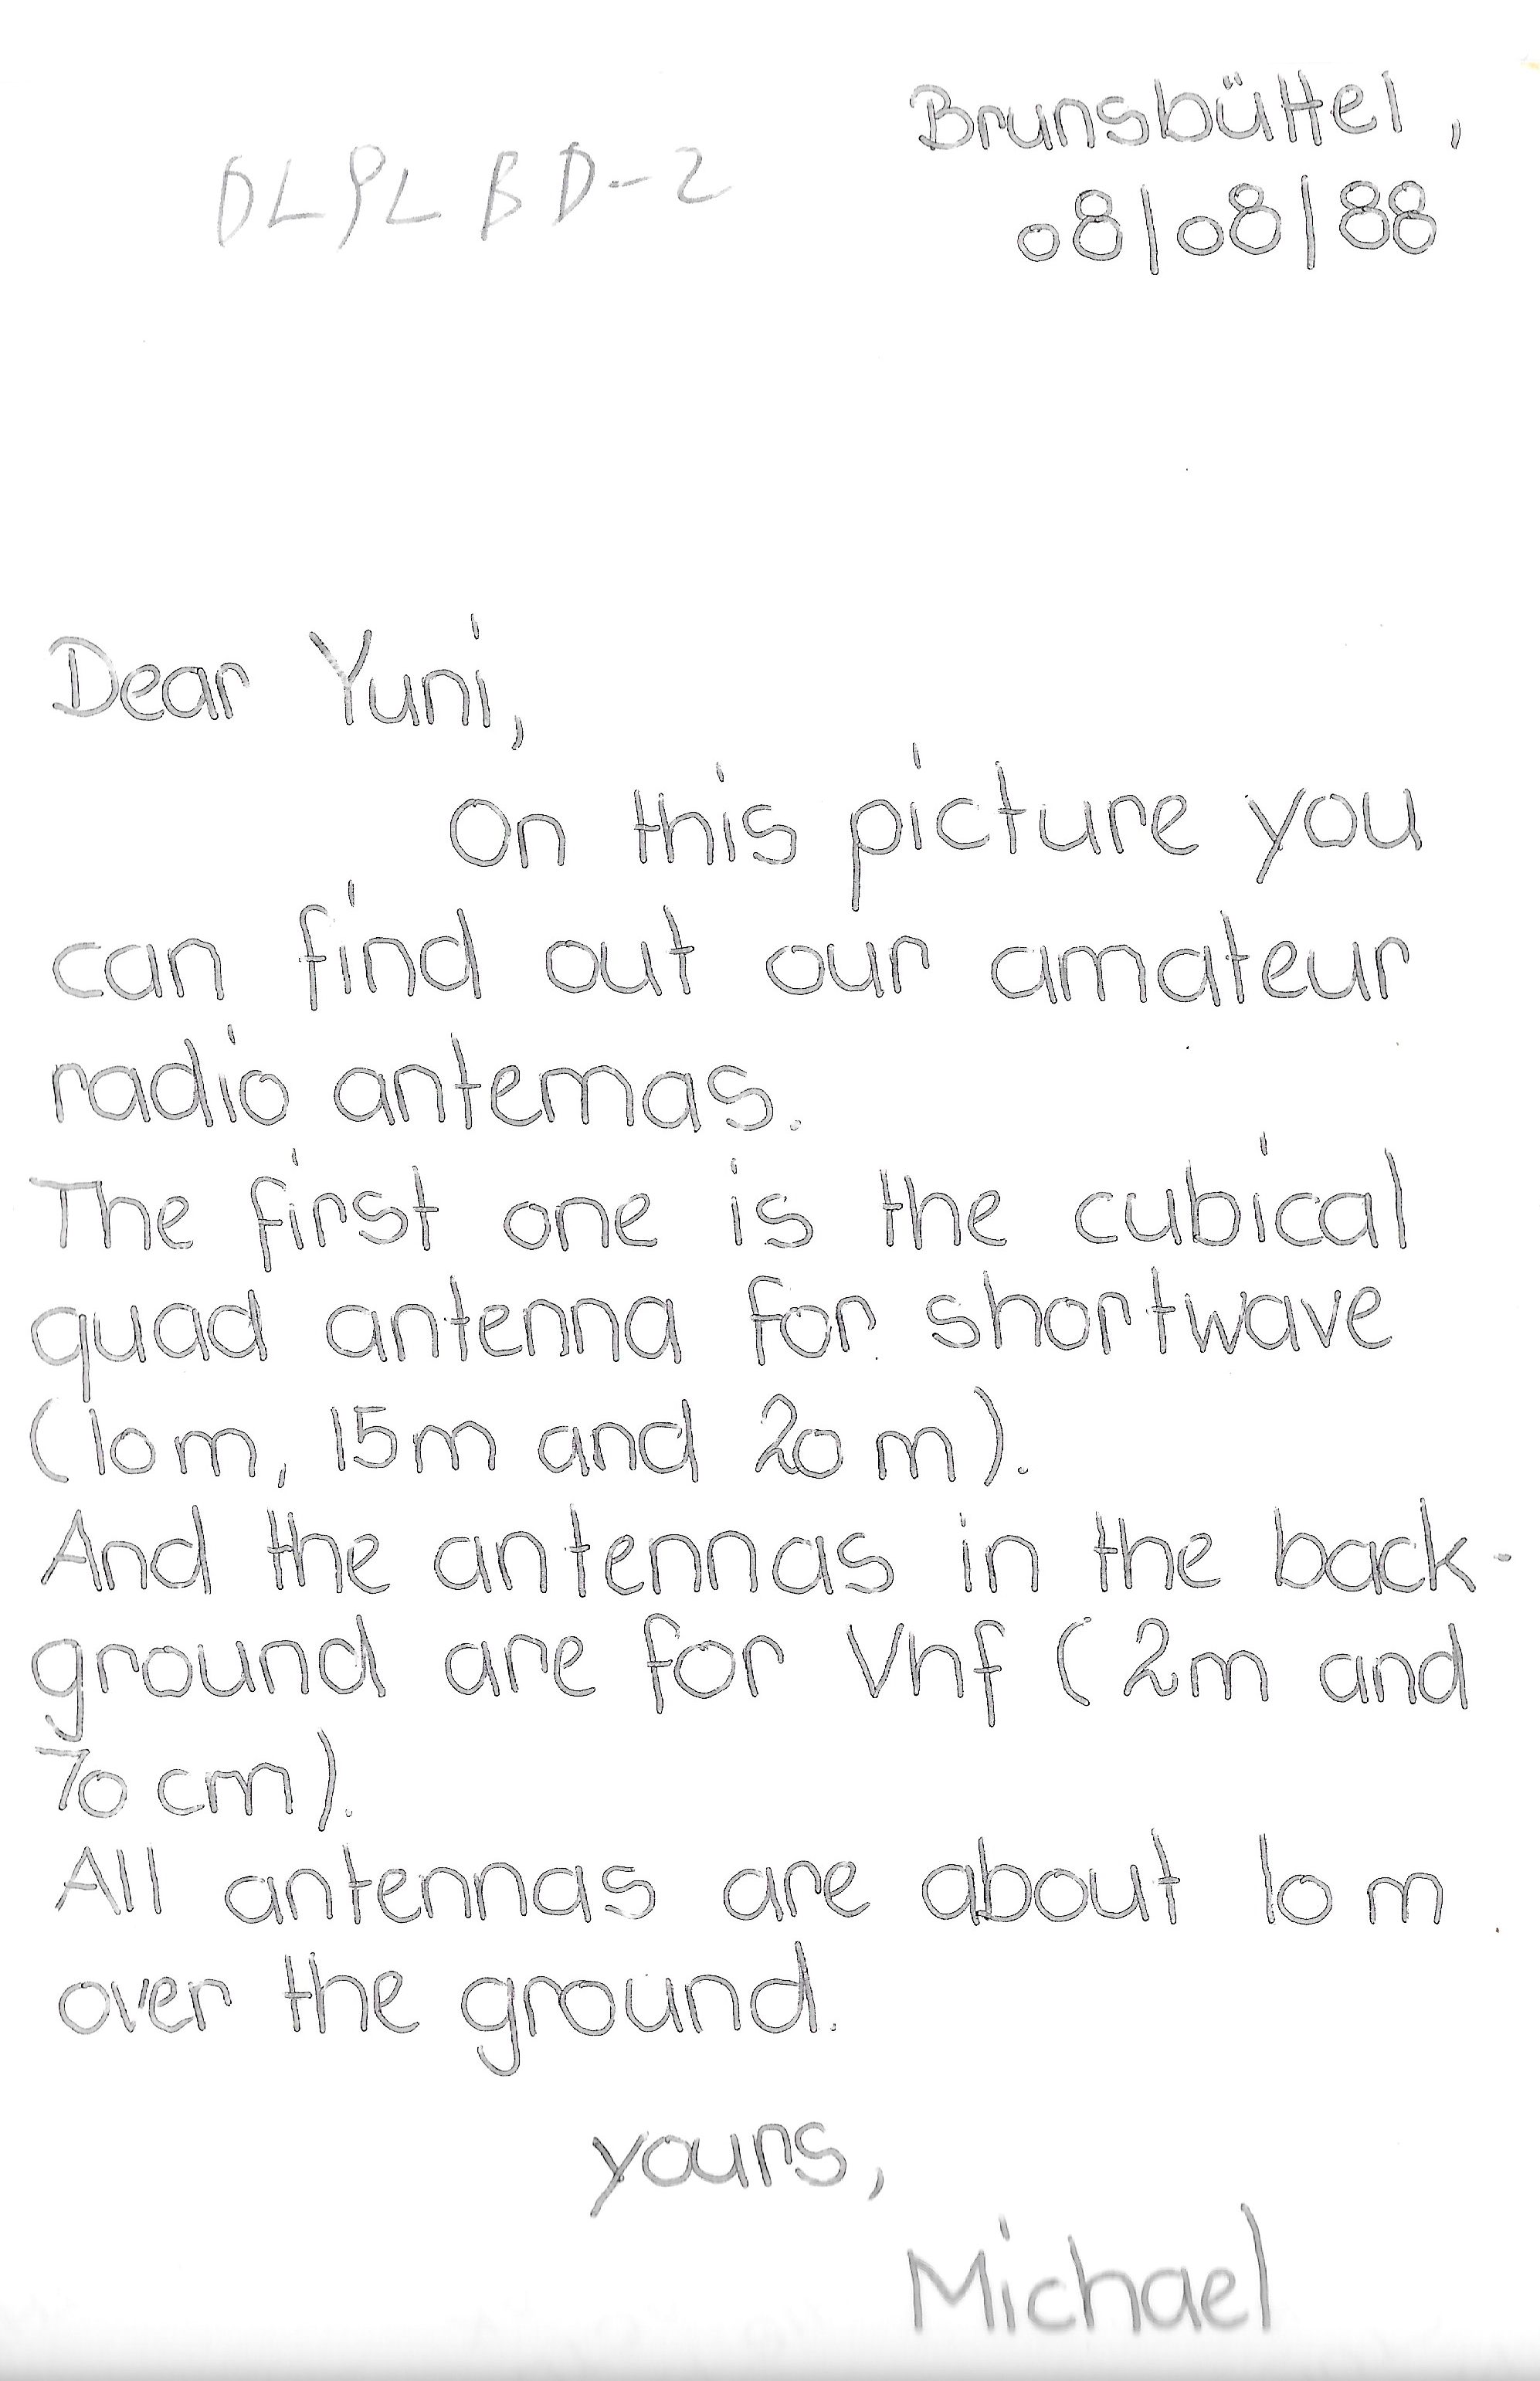 Brunsbüttel,
DL9LBD-2
08/08/88
Dear Yuni,
On this picture you
can find out our amateur
radio antennas.
The first one is the cubical
quad antenna for shortwave
(10m, 15m and 20m).
And the antennas in the back-
ground are for Vhf (2m and
70cm).
All antennas are about 10m
over the ground.
yours,
Michael